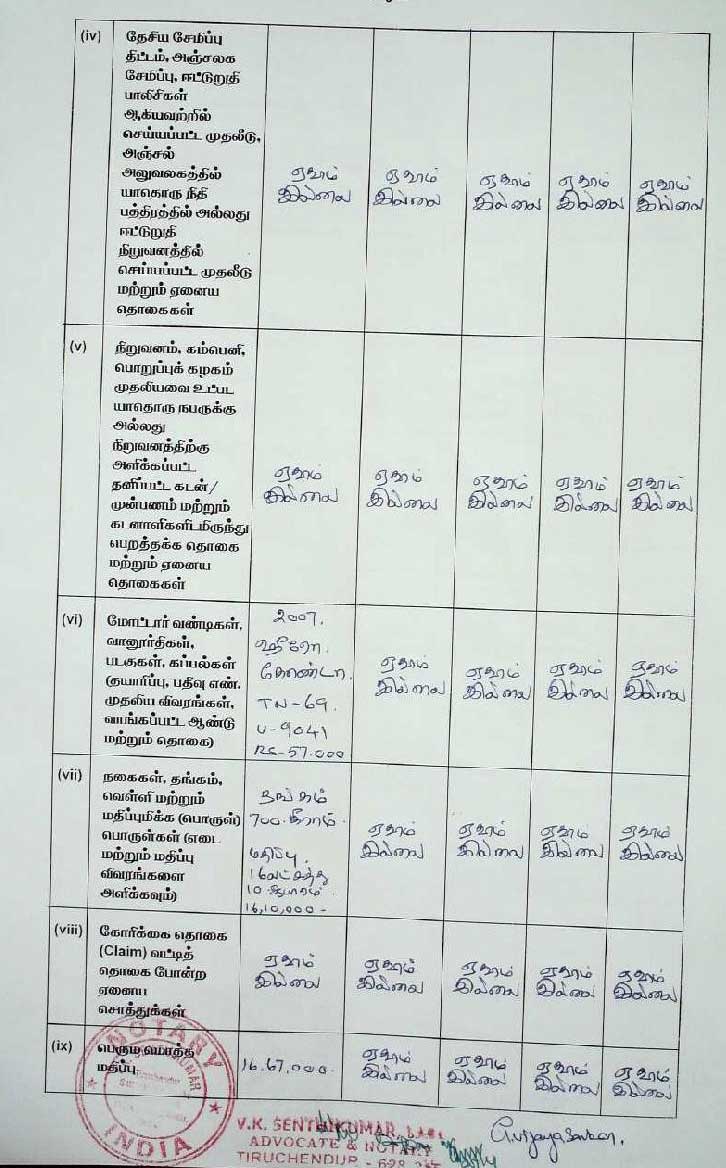 (iv)
தேசிய சேமிப்பு
திட்டம், அஞ்சலக
சேமப்பு, ஈட்டுறுதி
பாலிசிகள்
ஆகியவற்றில்
செய்யப்பட்ட முதலீடு,
அஞ்சல்
அலுவலகத்தில்
யாதொரு நிதி
பத்திரத்தில் அல்லது
ஈட்டுறுதி
நிறுவனத்தில்
செய்யப்பட்ட முதலீடு
மற்றும் ஏனைய
தொகைகள்
ஏதும் ஏதும் ஏதும் ஏதும் ஏதும்
இல்லை இல்லை இல்லை இல்லை இல்லை
(v)
நிறுவனம், கம்பெனி,
பொறுப்புக் கழகம்
முதலியவை உட்பட
யாதொரு நபருக்கு
அல்லது
நிறுவனத்திற்கு
அளிக்கப்பட்ட
தனிப்பட்ட கடன்/
முன்பணம் மற்றும்
கடனாளிகளிடமிருந்து
பெறத்தக்க தொகை
மற்றும் ஏனைய
தொகைகள்
ஏதும் ஏதும் ஏதும் ஏதும் ஏதும்
இல்லை இல்லை இல்லை இல்லை இல்லை
(vi)
மோட்டார் வண்டிகள்,
வானூர்திகள்,
படகுகள், கப்பல்கள்
(தயாரிப்பு, பதிவு எண்.
முதலிய விவரங்கள்,
வாங்கப்பட்ட ஆண்டு
மற்றும் தொகை)
2007.
ஹீரோ
கோண்டா.
TN-69.
U-9041
RS-57.000
ஏதும் ஏதும் ஏதும் ஏதும்
இல்லை இல்லை இல்லை இல்லை
(vii)
நகைகள், தங்கம்,
வெள்ளி மற்றும்
மதிப்புமிக்க (பொருள்)
பொருள்கள் (எடை
மற்றும் மதிப்பு
விவரங்களை
அளிக்கவும்)
தங்கம்
700.கிராம்.
மதிப்பு.
16லட்சத்து
10.ஆயிரம்
16,10,000-
ஏதும் ஏதும் ஏதும் ஏதும்
இல்லை இல்லை இல்லை இல்லை
(viii)
கோரிக்கை தொகை
(Claim) வட்டித்
தொகை போன்ற
ஏனைய
சொத்துக்கள்
ஏதும் ஏதும் ஏதும் ஏதும் ஏதும்
இல்லை இல்லை இல்லை இல்லை இல்லை
(ix)
பெரும மொத்த
மதிப்பு
16.67,000.
ஏதும் ஏதும் ஏதும் ஏதும்
இல்லை இல்லை இல்லை இல்லை
NOTARY
INDIA
V.K. SENTHILKUMAR,
ADVOCATE & NOTARY
TIRUCHENDUR - 628